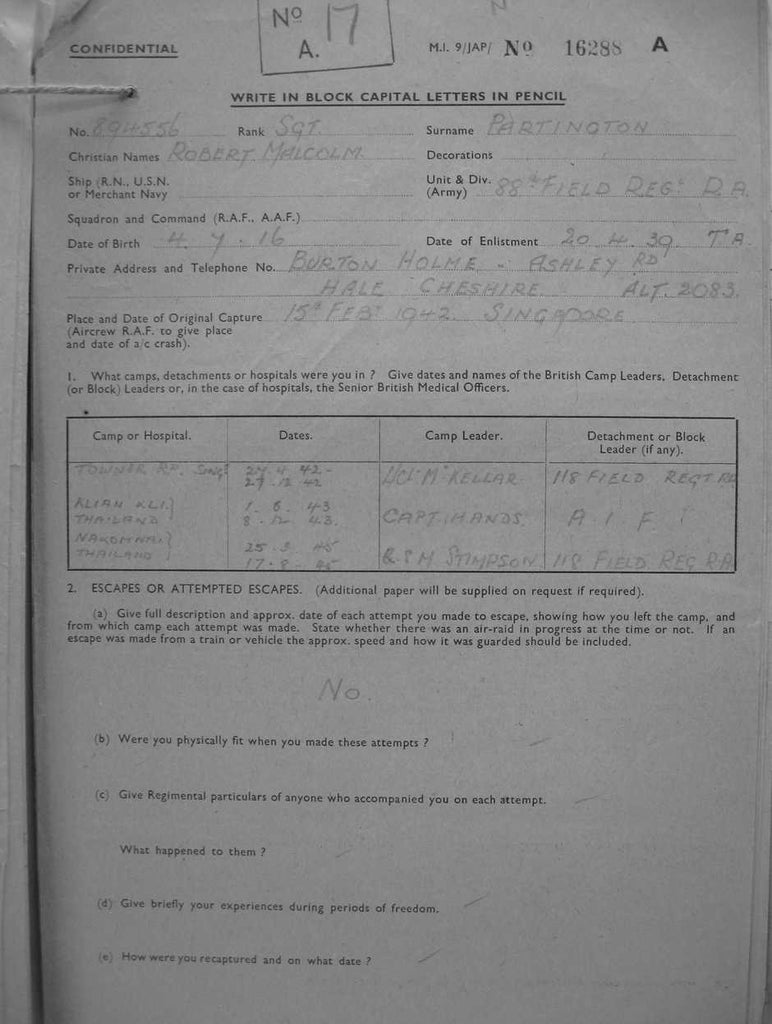 Nº 17
A.
CONFIDENTIAL
M.I. 9/JAP/ Nº 16288 A
WRITE IN BLOCK CAPITAL LETTERS IN PENCIL
No. 894556 Rank SGT. Surname PARTINGTON
Christian Names ROBERT. MALCOLM. Decorations
Ship (R.N., U.S.N. or Merchant Navy Unit & Div. (Army) 88th FIELD REGt R.A.
Squadron and Command (R.A.F., A.A.F.)
Date of Birth 4. 7. 16 Date of Enlistment 20. 4. 39. T.A.
Private Address and Telephone No. BURTON HOLME - ASHLEY RD
HALE CHESHIRE. ALT. 2083.
Place and Date of Original Capture 15th FEBy 1942. SINGAPORE.
(Aircrew R.A.F. to give place
and date of a/c crash).
1. What camps, detachments or hospitals were you in ? Give dates and names of the British Camp Leaders, Detachment
(or Block) Leaders or, in the case of hospitals, the Senior British Medical Officers.
Camp or Hospital. Dates. Camp Leader. Detachment or Block Leader (if any).
TOWNER RD. 42 -
27. 12 42 McKELLAR 118 FIELD REGT RA
KLIAN KLI 1. 6. 43
THAILAND 8 - 12 43. CAPT. HANDS. A. I. F.
THAILAND 25. 3. 45
17. 8. 45 R.S.M STIMPSON 118 FIELD REG RA
2. ESCAPES OR ATTEMPTED ESCAPES. (Additional paper will be supplied on request if required).
(a) Give full description and approx. date of each attempt you made to escape, showing how you left the camp, and
from which camp each attempt was made. State whether there was an air-raid in progress at the time or not. If an
escape was made from a train or vehicle the approx. speed and how it was guarded should be included.
No.
(b) Were you physically fit when you made these attempts ?
(c) Give Regimental particulars of anyone who accompanied you on each attempt.
What happened to them ?
(d) Give briefly your experiences during periods of freedom.
(e) How were you recaptured and on what date ?